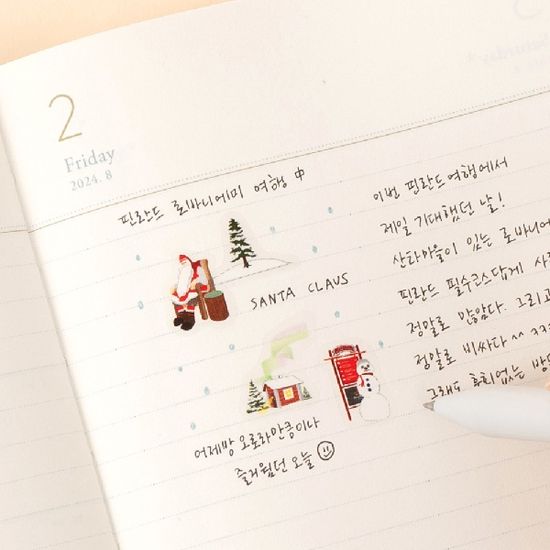 2
Friday
2024. 8
핀란드 로바니에미 여행 中
SANTA CLAUS
어제밤 오로라만큼이나
즐거웠던 오늘
이번 핀란드여행에서
제일 기대했던 날!
산타마을이 있는 로바니에
핀란드 필수코스답게 사
정말로 많았다. 그리고
정말로 비싸다 ^^ ㅋㅋ
그래도 후회없는